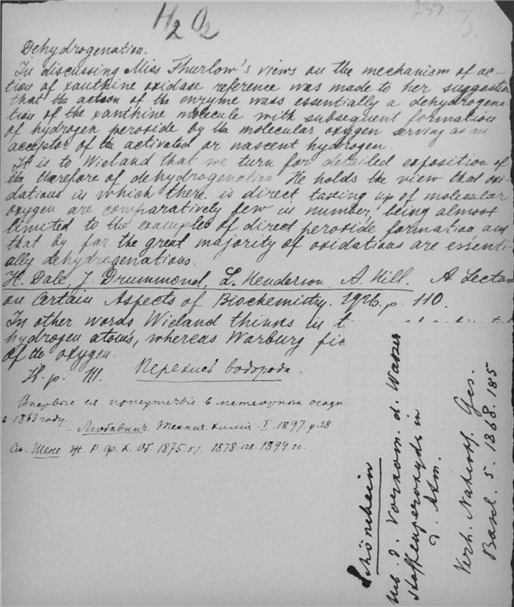 H2O2
237
3.
Dehydrogenation.
In discussing Miss Thurlow's views on the mechanism of ac-
tion of xanthine oxidase reference was made to her suggestion
that the action of the enzyme was essentially a dehydrogena
tion of the xanthine molecule with subsequent formation
of hydrogen peroxide by the molecular oxygen serving as an
acceptor of the activated or nascent hydrogen.
It is to Wieland that we turn for detailed exposition of
the therefore of dehydrogenation. He holds the view that oxi
dations in which there is direct taking up of molecular
oxygen are comparatively few in number, being almost
limited to the examples of direct peroxide formation and
that by far the great majority of oxidations are essenti-
ally dehydrogenations.
H. Dale, J. Drummond, L. Henderson, A. Hill. A Lectur
on Certain Aspects of Biochemistry. 1926. p. 110.
In other words Wieland thinks in t
hydrogen atoms, whereas Warburg
of the oxygen.
p. 111. Перекись водорода.
Впервые ея присутствие в
в 1863 году.
Любавин. Технич. химия. I. 1897. p. 28
См. Шене Ж. Р. Ф. Х. Об. 1875. 1878. 1894.
Schönbein
Ueb. d. Vorkom. d. Wasser
stoffsuperoxyds in
d. Atm.
Verh. Naturf. Ges.
Basel. 5. 1868. 185